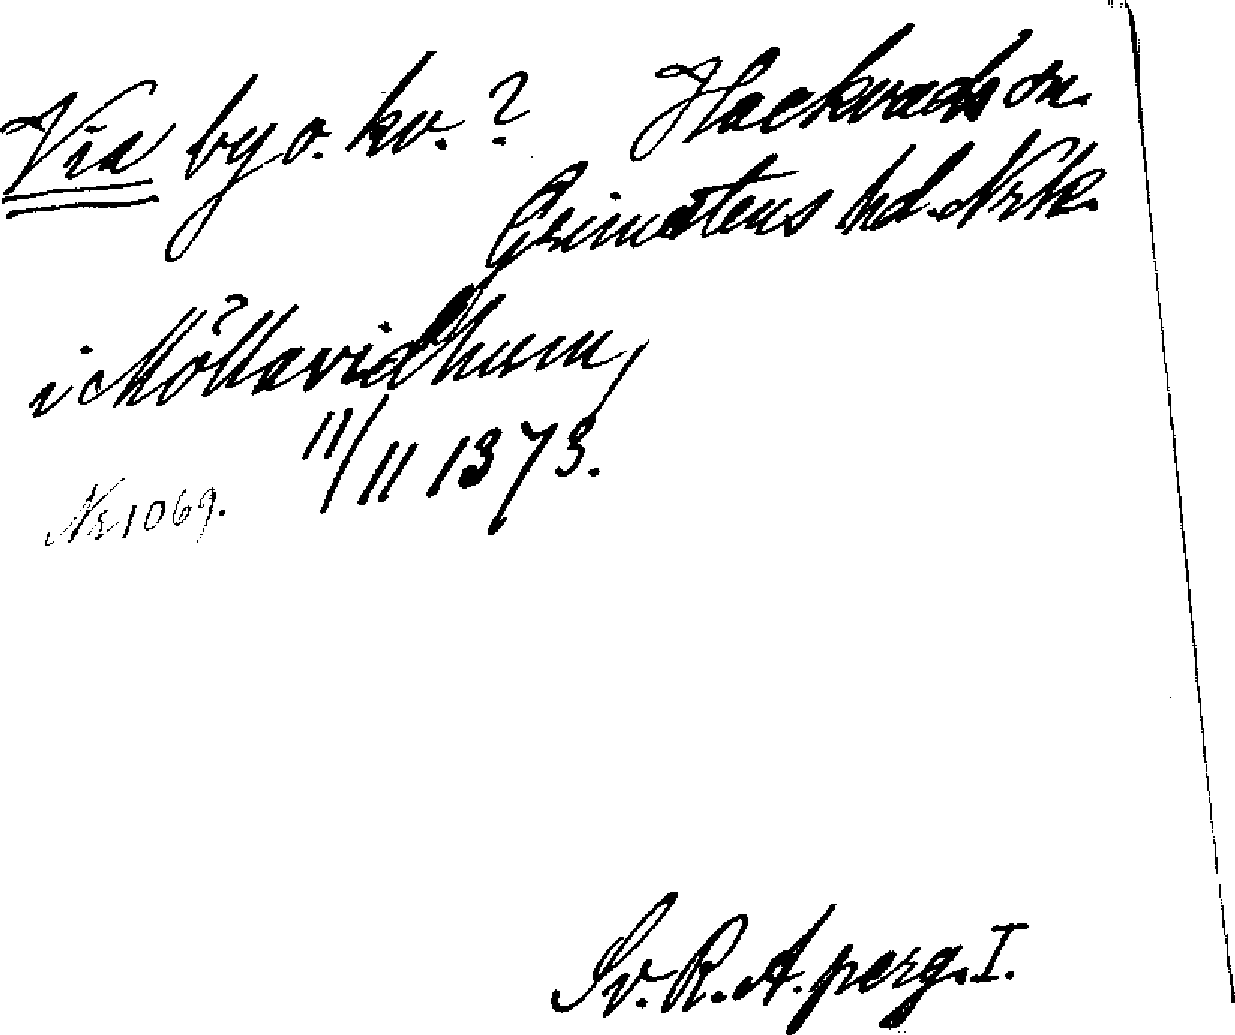 Via by o. kv.? Hackvads sn.
Grimstens hd. Nrk.
i Möllavidhum,
11/11 1373.
Nr 1069.
Sv. R. A. perg. I.